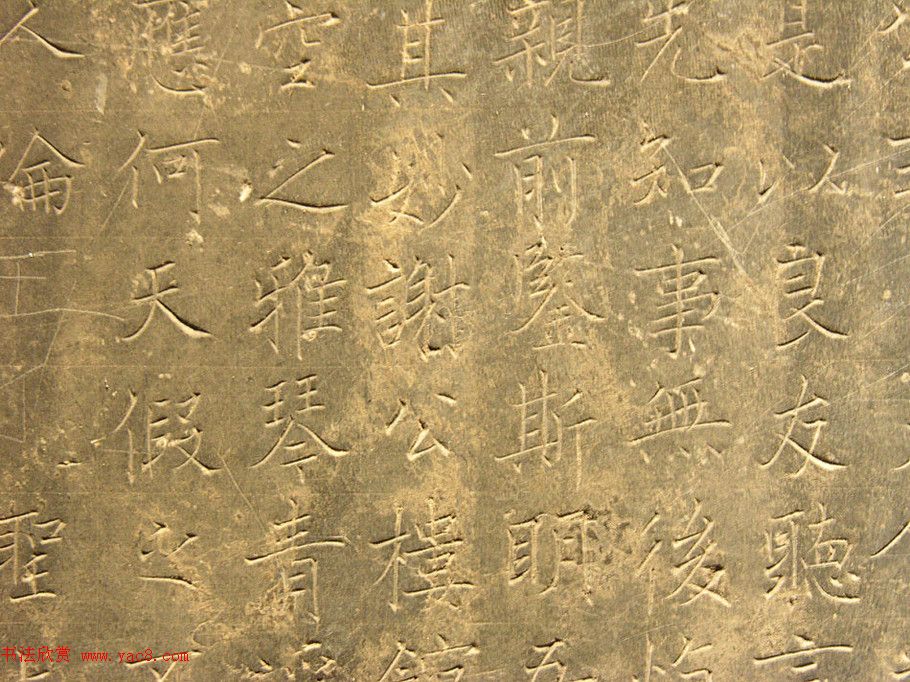 是以良友聽言
先知事無後
親前鑒斯明
其妙謝公樓館
空之雅琴青
應何天假之
人倫
聖
书法欣赏 www.yac8.com